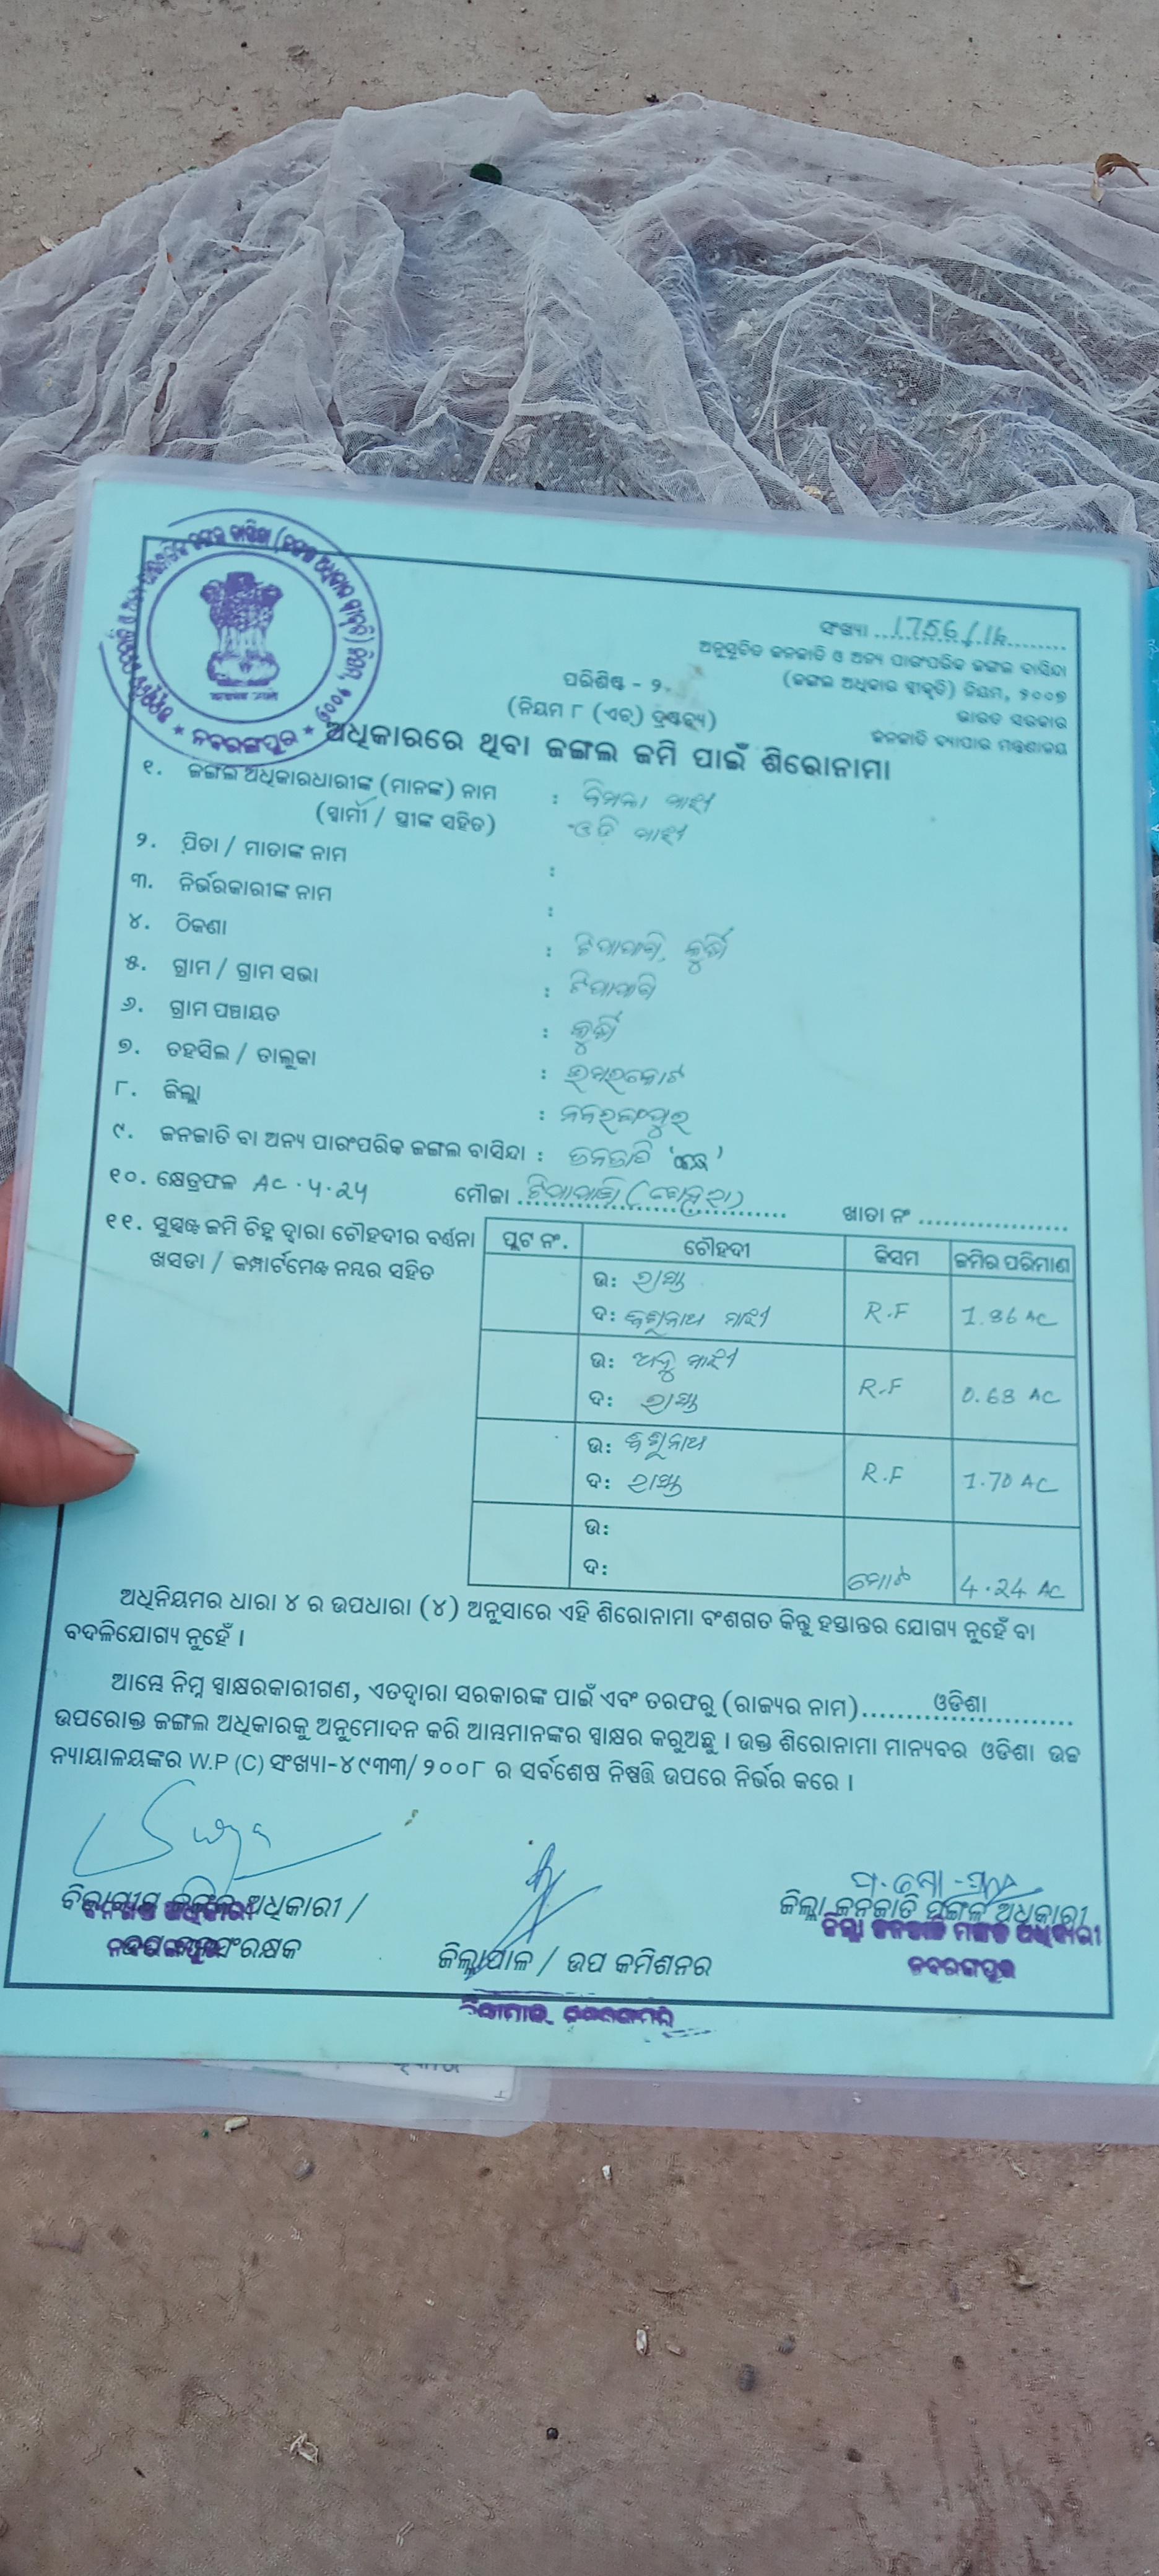 ସଂଖ୍ୟା ..... 1756/16 .....
ଅନୁସୂଚିତ ଜନଜାତି ଓ ଅନ୍ୟ ପାରଂପରିକ ଜଙ୍ଗଲ ବାସିନ୍ଦା
(ଜଙ୍ଗଲ ଅଧିକାର ସ୍ୱୀକୃତି) ନିୟମ, ୨୦୦୭
ଭାରତ ସରକାର
ଜନଜାତି ବ୍ୟାପାର ମନ୍ତ୍ରଣାଳୟ
ପରିଶିଷ୍ଟ - ୨
(ନିୟମ ୮ (ଏଚ୍) ଦ୍ରଷ୍ଟବ୍ୟ)
ନବରଙ୍ଗପୁର
ଅଧିକାରରେ ଥିବା ଜଙ୍ଗଲ ଜମି ପାଇଁ ଶିରୋନାମା
୧. ଜଙ୍ଗଲ ଅଧିକାରଧାରୀଙ୍କ (ମାନଙ୍କ) ନାମ : ବିମଳା ମାଝୀ
(ସ୍ୱାମୀ / ସ୍ତ୍ରୀଙ୍କ ସହିତ) ମାଝୀ
୨. ପିତା / ମାତାଙ୍କ ନାମ :
୩. ନିର୍ଭରକାରୀଙ୍କ ନାମ :
୪. ଠିକଣା :
୫. ଗ୍ରାମ / ଗ୍ରାମ ସଭା :
୬. ଗ୍ରାମ ପଞ୍ଚାୟତ :
୭. ତହସିଲ / ତାଲୁକା : ଉମରକୋଟ
୮. ଜିଲ୍ଲା : ନବରଙ୍ଗପୁର
୯. ଜନଜାତି ବା ଅନ୍ୟ ପାରଂପରିକ ଜଙ୍ଗଲ ବାସିନ୍ଦା : ଜନଜାତି
୧୦. କ୍ଷେତ୍ରଫଳ AC . 4.24 ମୌଜା ..... ଖାତା ନଂ .....
୧୧. ସୁସ୍ପଷ୍ଟ ଜମି ଚିହ୍ନ ଦ୍ୱାରା ଚୌହଦୀର ବର୍ଣନା
ଖସଡା / କମ୍ପାର୍ଟମେଣ୍ଟ ନମ୍ବର ସହିତ
ପ୍ଲଟ ନଂ. ଚୌହଦୀ କିସମ ଜମିର ପରିମାଣ
ଉ: ରାସ୍ତା
ଦ: ମାଝୀ R.F 1.86 AC
ଉ: ମାଝୀ
ଦ: ରାସ୍ତା R.F 0.68 AC
ଉ:
ଦ: ରାସ୍ତା R.F 1.70 AC
ଉ:
ଦ: ମୋଟ 4.24 AC
ଅଧିନିୟମର ଧାରା ୪ ର ଉପଧାରା (୪) ଅନୁସାରେ ଏହି ଶିରୋନାମା ବଂଶଗତ କିନ୍ତୁ ହସ୍ତାନ୍ତର ଯୋଗ୍ୟ ନୁହେଁ ବା
ବଦଳିଯୋଗ୍ୟ ନୁହେଁ ।
ଆମ୍ଭେ ନିମ୍ନ ସ୍ୱାକ୍ଷରକାରୀଗଣ, ଏତଦ୍ୱାରା ସରକାରଙ୍କ ପାଇଁ ଏବଂ ତରଫରୁ (ରାଜ୍ୟର ନାମ) ..... ଓଡିଶା .....
ଉପରୋକ୍ତ ଜଙ୍ଗଲ ଅଧିକାରକୁ ଅନୁମୋଦନ କରି ଆମ୍ଭମାନଙ୍କର ସ୍ୱାକ୍ଷର କରୁଅଛୁ । ଉକ୍ତ ଶିରୋନାମା ମାନ୍ୟବର ଓଡିଶା ଉଚ୍ଚ
ନ୍ୟାୟାଳୟଙ୍କର W.P (C) ସଂଖ୍ୟା-୪୯୩୩/୨୦୦୮ ର ସର୍ବଶେଷ ନିଷ୍ପତ୍ତି ଉପରେ ନିର୍ଭର କରେ ।
ବିଭାଗୀୟ ଜଙ୍ଗଲ ଅଧିକାରୀ /
ଉପ ବନ ସଂରକ୍ଷକ
ଜିଲ୍ଲାପାଳ / ଉପ କମିଶନର
ଜିଲ୍ଲା ଜନଜାତି ମଙ୍ଗଳ ଅଧିକାରୀ
ଜିଲ୍ଲା ଜନଜାତି ମଙ୍ଗଳ ଅଧିକାରୀ
ନବରଙ୍ଗପୁର